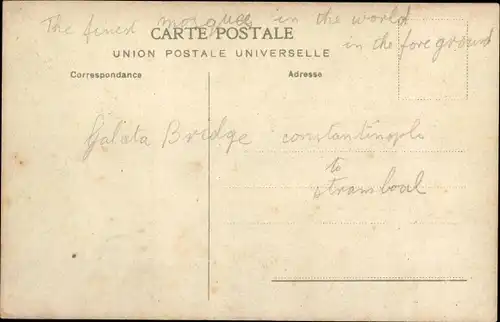 The finest mosques in the world
in the fore ground
CARTE POSTALE
UNION POSTALE UNIVERSELLE
Correspondance
Adresse
Galata Bridge constantinople
to
stramboal